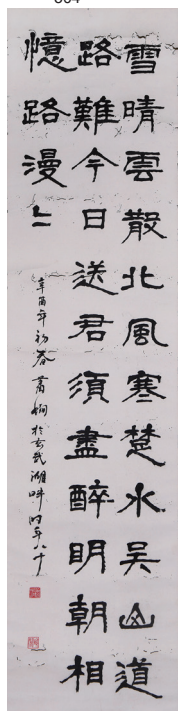 雪晴雲散北風寒楚水吳山道
路難今日送君須盡醉明朝相
憶路漫〻
辛酉年初春 蕭嫻於玄武湖畔時年八十